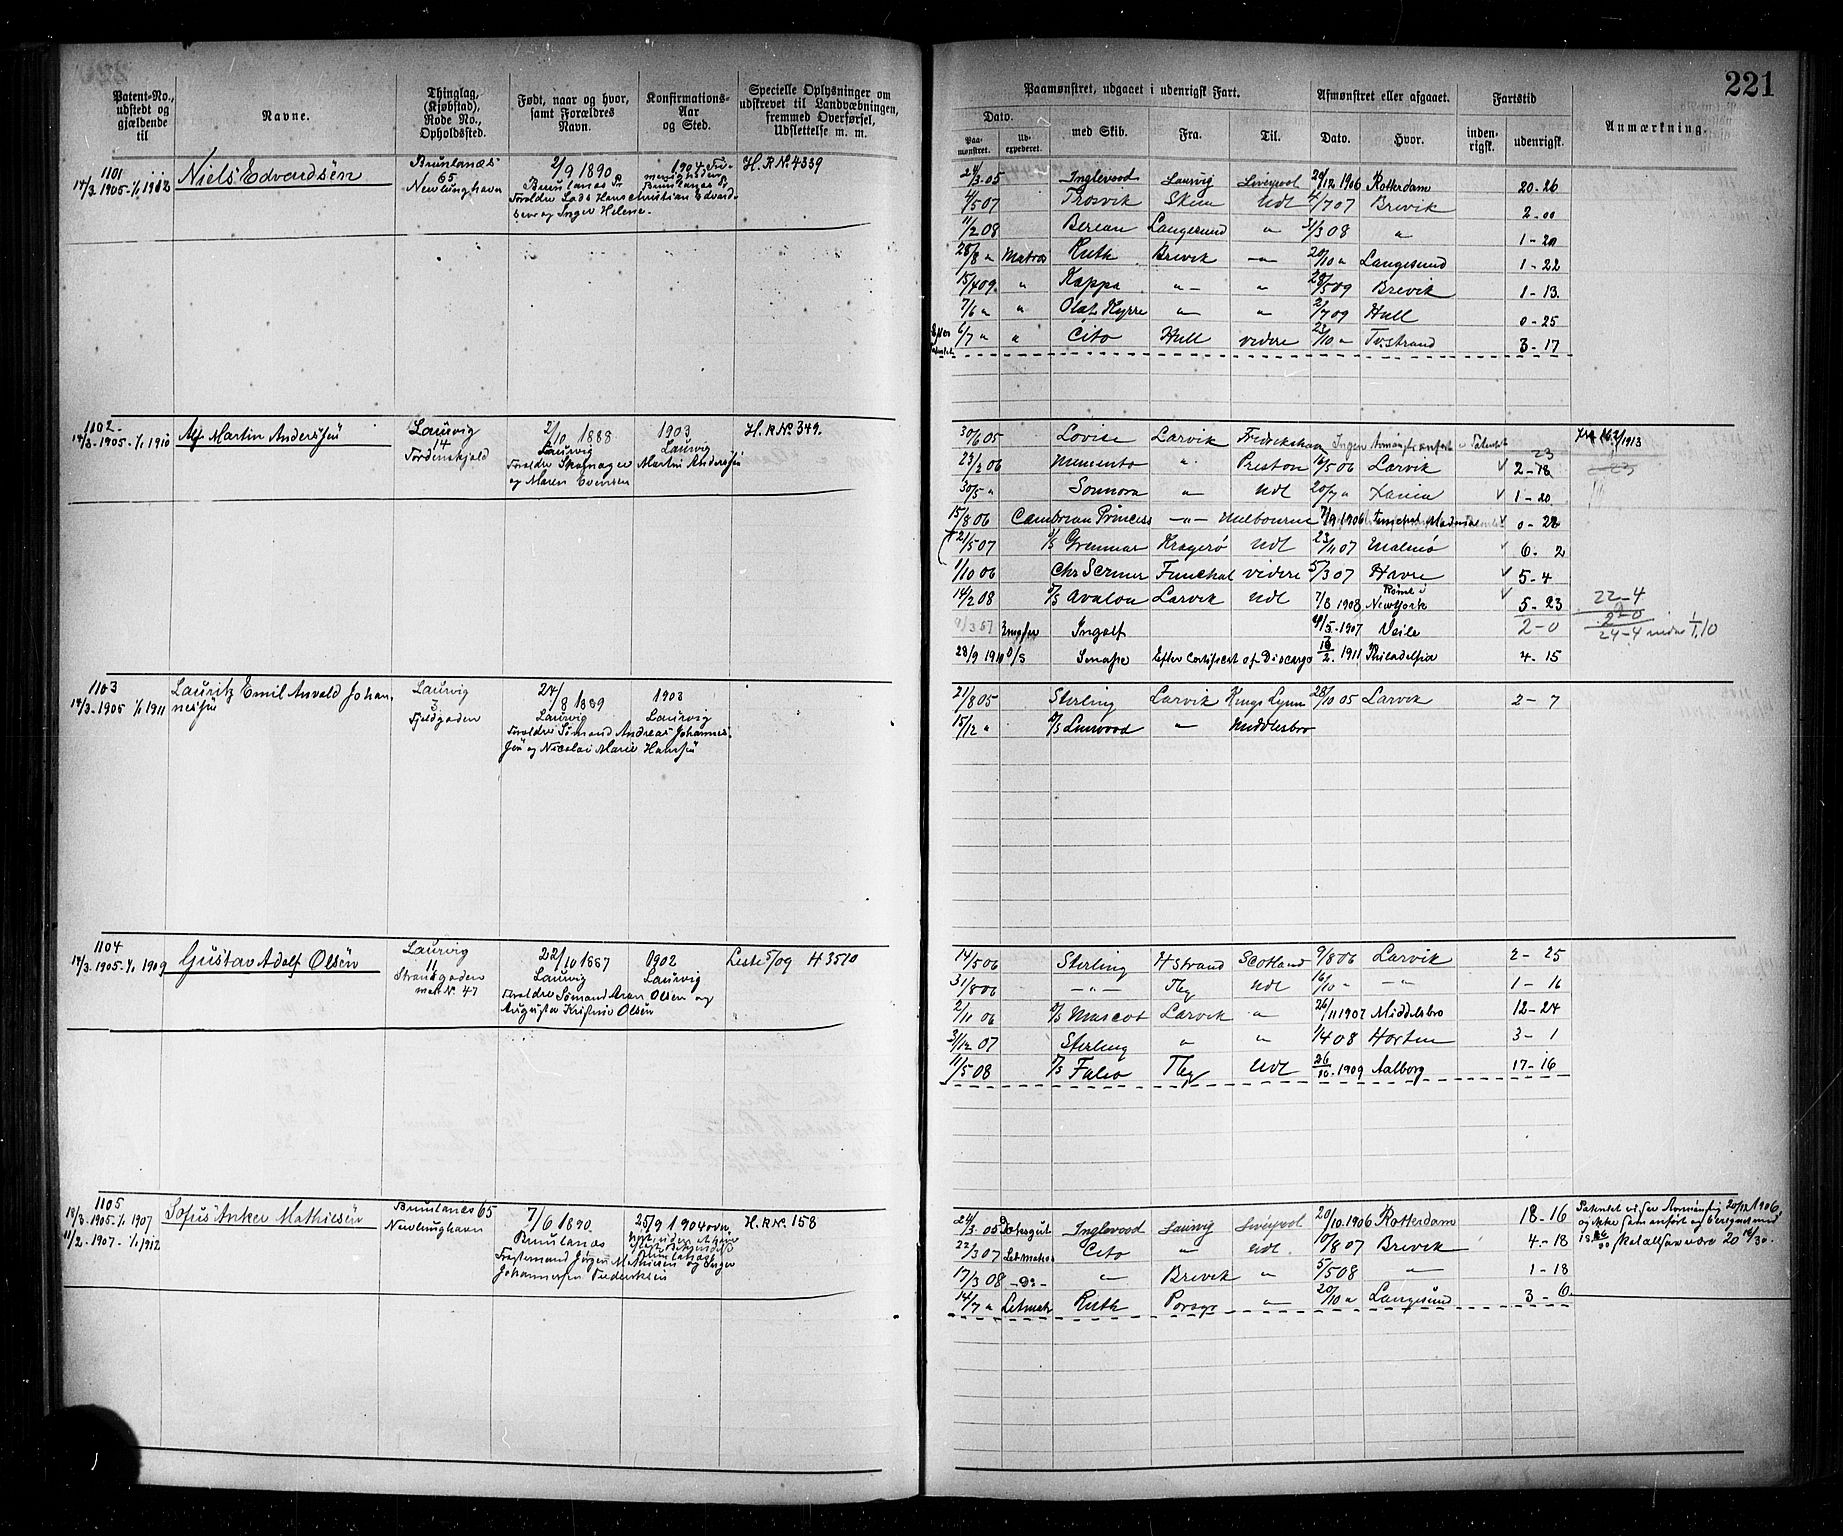 221
Patent-No., udstedt og gjældende til
Navne.
Thinglag, (Kjøbstad), Rode No., Opholdssted.
Født, naar og hvor, samt Forældres Navn.
Konfirmations-Aar og Sted.
Specielle Oplysninger om udskrevet til Landværbningen, fremmed Overførsel, Udslettelse m. m.
Paamønstret, udgaaet i udenrigsk Fart.
Afmønstret eller afgaaet.
Fartstid
Anmærkning.
Dato.
Paamønstret.
Udexpederet.
med Skib.
Fra.
Til.
Dato.
Hvor.
indenrigsk.
udenrigsk.
1101
14/3 1905 - 1/1 1912
Niels Edvardsen
Brunlanæs
65
Nevlunghavn
2/9 1890
Brunlanæs Pr
Forældre Lods Hans Christian Edvardsen og Inger Helene.
1904
Brunlanæs Pr
H. R No. 4339
24/3 05 Inglewood Laurvig Liverpool 20/12 1906 Rotterdam 20-26
4/5 07 Frosvik Skien Udl 4/7 07 Brevik 2-00
11/2 08 Berean Langesund " 31/3 08 " 1-20
28/8 " Matros Ruth Brevik -"- 20/10 " Langesund 1-22
15/4 09. " Kappa "- " 28/5 09 Brevik 1-13.
7/6 " " Olaf Kyrre " " 2/7 09 Hull 0-25
6/7 " " Cito Hull videre 23/10 " Tv.strand 3-17
1102
14/3 1905 - 1/1 1910
Alf Martin Anderssen
Laurvig
14
Tordenskjold
2/10 1888
Laurvig
Forældre Skomager Martin Anderssen
og Maren Evensen
1903
Laurvig
H. R No. 349.
30/6 05 Lovise Larvik Fredrikshavn Ingen Patentet
1913
23/2 06 Memento " Preston 16/5 06 Larvik 2-18 23
30/5 " Sonnora " Udl 20/7 " 1-20
15/8 06 Cambrian Princess -"- Melbourne 7/9 1906 Funchal Madeira 0-22
21/5 07 D/S Grenmar Kragerø Udl 23/11 07 Malmø 6. 2
1/10 06 Chr Scriver Funchal videre 5/3 07 Havre 5-4
14/2 08 D/S Avalon Larvik Udl 7/8 1908 Rømt i New York 5-23
22-4
2-0
24-4 inden 1/1.10
9/3 07 Ingolf 9/5-1907 Veile 2-0
28/9 1910 D/S Snape Efter Certificat of Discarge 16/2. 1911 Philadelfia 4-15
1103
14/3-1905 1/1 1911
Lauritz Emil Anvald Johannessen
Laurvig
3
Fjeldgaden
24/8 1889
Laurvig
Forældre Sømand Andreas Johannessen og Nicolai Marie Hanssen
1903
Laurvig
21/8 05 Sterling Larvik Kings Lynn 28/10 05 Larvik 2-7
15/12 " D/S Linwood " Middlesbro
1104
14/3-1905-1/1 1909
Gustav Adolf Olsen
Laurvig
11
Strandgaden
mat No. 47
22/10 1887
Laurvig
Forældre Sømand Aron Olsen og
Augusta Kristine Olsen
1902
Laurvig
Liste 5/09 H 3510
14/5 06 Sterling Hstrand Scotland 9/8 06 Larvik 2-25
31/8 06 -"- Tbg Udl 16/10 " -"- 1-16
2/11 06 D/S Mascot Larvik " 26/11 1907 Middelsbro 12-24
31/12 07 Sterling " " 1/4 08 Horten 3-1
11/5 08 D/S Falco Tbg Udl 26/10.1909 Aalborg 17-16
1105
18/3-1905-1/1 1907
11/2-1907-1/1 1912
Sofus Anker Mathiesen
Brunlanes 65
Nevlunghavn
7/6 1890
Brunlanæs
Fragtemand Jørgen Mathiesen og Inger
Johannesen Frederiksen
25/9 1904
H. R No. 158
24/3. 05 Dæksgut Inglewood Laurvig Liverpool 20/10.1906 Rotterdam 18-16
22/3 07 Letmatros Cito " Udl. 10/8 07 Brevik 4-18
17/3 08 -Do- " Brevik " 5/5 08 " 1-18
14/7 " Letmatr Ruth Porsgr " 20/10 " Langesund 3-6
Patentet viser Avmønstrig 20/12 1906,
og ikke som anført og beregnet med
18. skal altsaa være 20